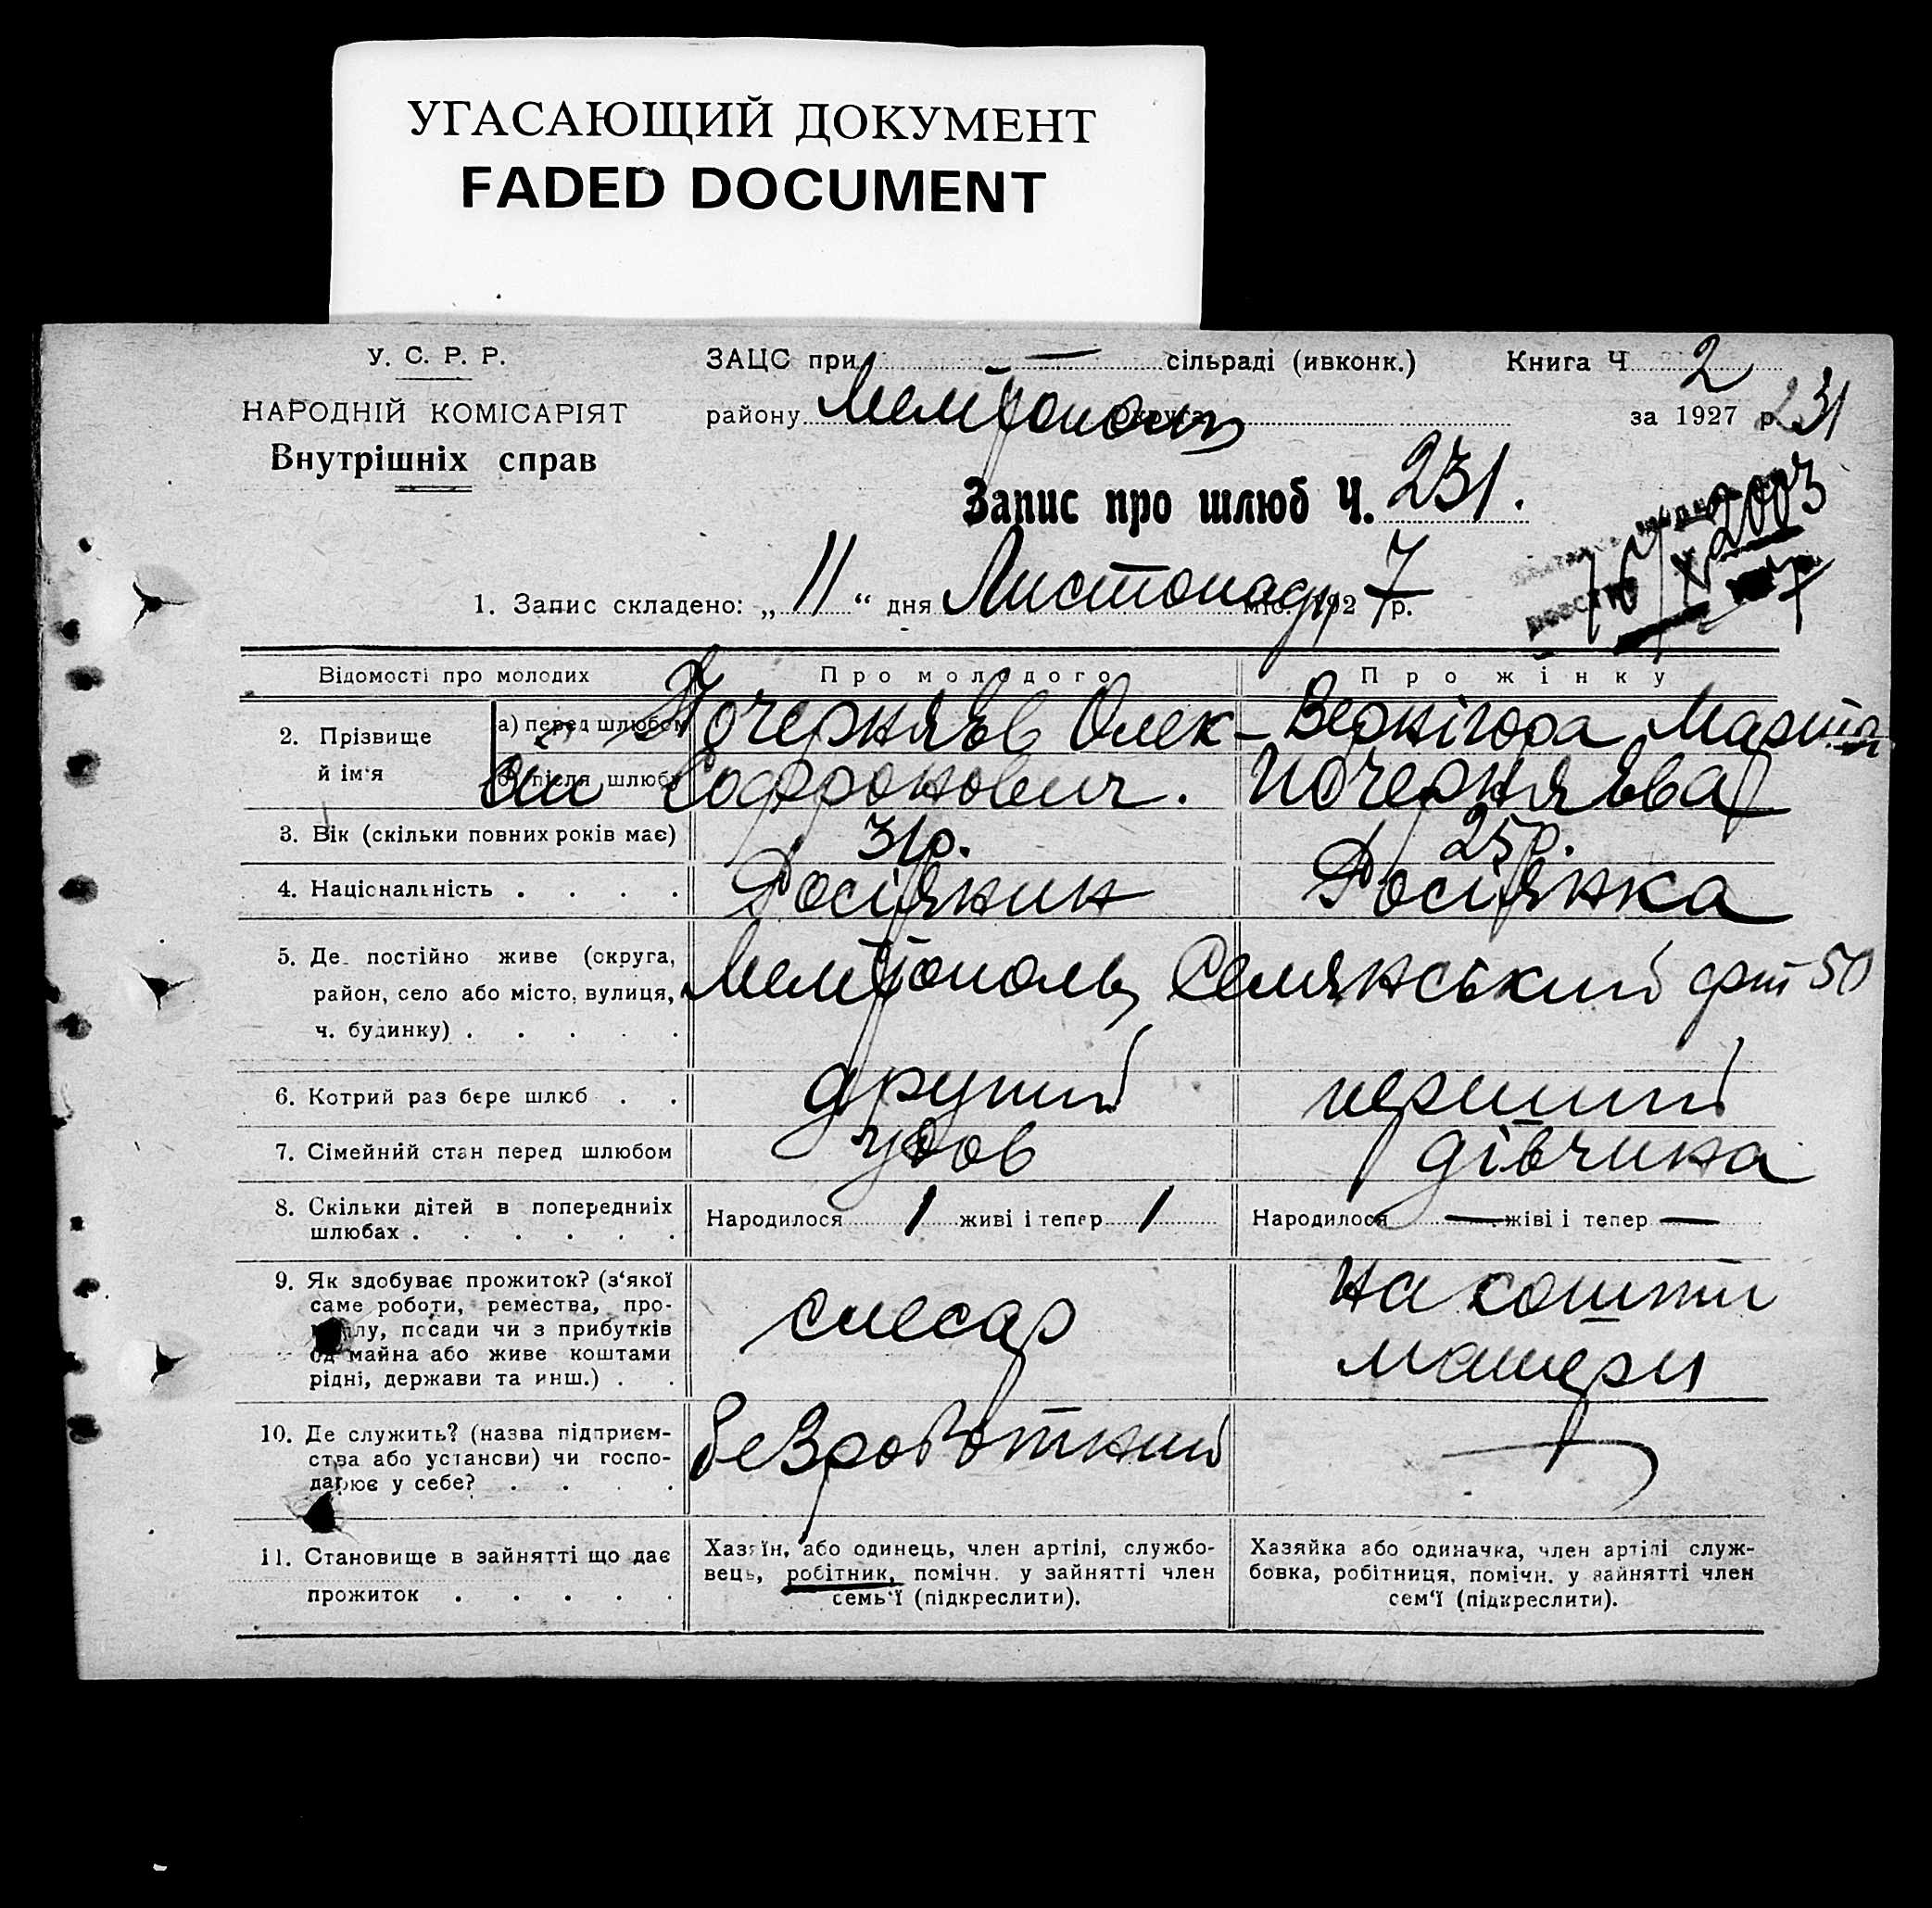 УГАСАЮЩИЙ ДОКУМЕНТ
FADED DOCUMENT
У. С. Р. Р.
НАРОДНІЙ КОМІСАРІЯТ
Внутрішніх справ
ЗАЦС при — сільраді (ивконк.)
району Мелітополь округи
Книга Ч 2
за 1927 р. 231
Запис про шлюб Ч. 231.
2003
1. Запис складено: „ 11 “ дня Листопаду міс. 192 7 р.
Відомості про молодих
Про молодого
Про жінку
2. Прізвище й ім'я
а) перед шлюбом
б) після шлюбу
Почерняєв Олек-
сій Софронович.
Вернігора Марта
Почерняєва
3. Вік (скільки повних років має)
31р.
25р.
4. Національність . . . .
Росіянин
Росіянка
5. Де постійно живе (округа,
район, село або місто, вулиця,
ч. будинку) . . . . .
Мелітополь, Семянський 50
6. Котрий раз бере шлюб . .
другий
перший
7. Сімейний стан перед шлюбом
удов
дівчина
8. Скільки дітей в попередніх
шлюбах . . . . . .
Народилося 1 живі і тепер 1
Народилося — живі і тепер —
9. Як здобуває прожиток? (з'якої
саме роботи, ремества, про-
мислу, посади чи з прибутків
од майна або живе коштами
рідні, держави та инш.) . .
слесар
на кошти
матери
10. Де служить? (назва підприєм-
ства або установи) чи госпо-
дарює у себе? . . . .
безроботний
—
11. Становище в зайнятті що дає
прожиток . . . . .
Хазяїн, або одинець, член артілі, службо-
вець, робітник, помічн. у зайнятті член
семь'ї (підкреслити).
Хазяйка або одиначка, член артілі служ-
бовка, робітниця, помічн. у зайнятті член
сем'ї (підкреслити).